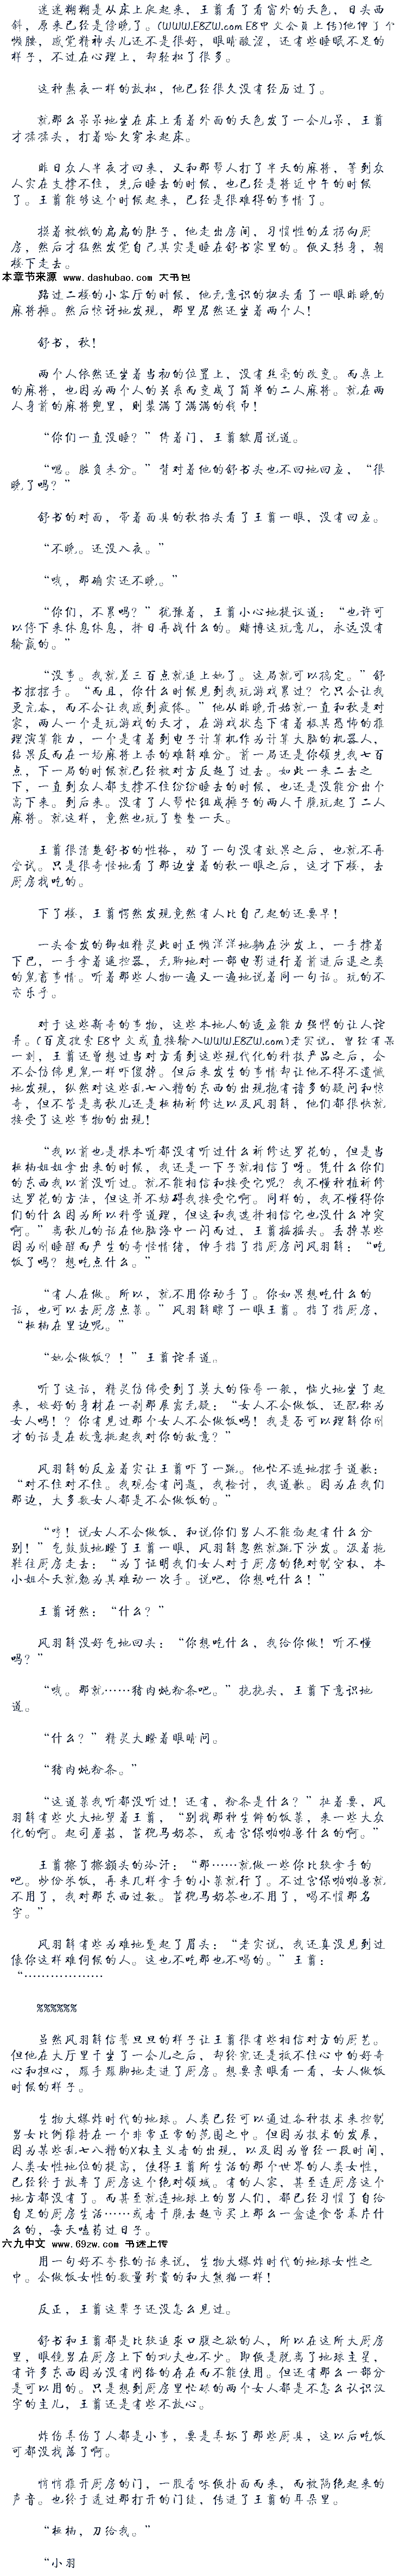 迷迷糊糊是从床上爬起来，王翦看了看窗外的天色，日头西
斜，原来已经是傍晚了。(WWW.E8ZW.com E8中文会员上传)他伸了个
懒腰，感觉精神头儿还不是很好，眼睛酸涩，还有些睡眠不足的
样子，不过在心理上，却轻松了很多。
这种熬夜一样的放松，他已经很久没有经历过了。
就那么呆呆地坐在床上看着外面的天色发了一会儿呆，王翦
才揉揉头，打着哈欠穿衣起床。
昨日众人半夜才回来，又和那帮人打了半天的麻将，等到众
人实在支撑不住，先后睡去的时候，也已经是将近中午的时候
了。王翦能够这个时候起来，已经是很难得的事情了。
摸着被饿的扁扁的肚子，他走出房间，习惯性的左拐向厨
房，然后才猛然发觉自己其实是睡在舒书家里的。便又转身，朝
楼下走去。
本章节来源 www.dashubao.com 大书包
路过二楼的小客厅的时候，他无意识的扭头看了一眼昨晚的
麻将摊。然后惊讶地发现，那里居然还坐着两个人！
舒书，秋！
两个人依然还坐着当初的位置上，没有丝毫的改变。而桌上
的麻将，也因为两个人的关系而变成了简单的二人麻将。就在两
人身前的麻将兜里，则装满了满满的钱币！
“你们一直没睡？”倚着门，王翦皱眉说道。
“嗯。胜负未分。”背对着他的舒书头也不回地回应，“很
晚了吗？”
舒书的对面，带着面具的秋抬头看了王翦一眼，没有回应。
“不晚。还没入夜。”
“哦，那确实还不晚。”
“你们，不累吗？”犹豫着，王翦小心地提议道：“也许可
以停下来休息休息，择日再战什么的。赌博这玩意儿，永远没有
输赢的。”
“没事。我就差三百点就追上她了。这局就可以搞定。”舒
书摆摆手。“而且，你什么时候见到我玩游戏累过？它只会让我
更亢奋，而不会让我感到疲倦。”他从昨晚开始就一直和秋是对
家，两人一个是玩游戏的天才，在游戏状态下有着极其恐怖的推
理演算能力，一个是有着到电子计算机作为计算大脑的机器人，
结果反而在一场麻将上杀的难解难分。前一局还是你领先我七百
点，下一局的时候就已经被对方反超了过去。如此一来二去之
下，一直到众人都支撑不住纷纷睡去的时候，也还是没能分出个
高下来。到后来。没有了人帮忙组成摊子的两人干脆玩起了二人
麻将。就这样，竟然也玩了整整一天。
王翦很清楚舒书的性格，劝了一句没有效果之后，也就不再
尝试。只是很奇怪地看了那边坐着的秋一眼之后，这才下楼，去
厨房找吃的。
下了楼，王翦愕然发现竟然有人比自己起的还要早！
一头金发的御姐精灵此时正懒洋洋地躺在沙发上，一手撑着
下巴，一手拿着遥控器，无聊地对一部电影进行着前进后退之类
的鬼畜事情。听着那些人物一遍又一遍地说着同一句话。玩的不
亦乐乎。
对于这些新奇的事物，这些本地人的适应能力强悍的让人诧
异。(百度搜索E8中文或直接输入WWW.E8ZW.com)老实说，曾经有某
一刻，王翦还曾想过当对方看到这些现代化的科技产品之后，会
不会仿佛见鬼一样吓傻掉。但后来发生的事情却让他不得不遗憾
地发现，纵然对这些乱七八糟的东西的出现抱有诸多的疑问和惊
奇，但不管是离秋儿还是桓楠祈修达以及风羽解，他们都很快就
接受了这些事物的出现！
“我以前也是根本听都没有听过什么祈修达罗花的，但是当
桓楠姐姐拿出来的时候，我还是一下子就相信了呀。凭什么你们
的东西我以前没听过。就不能相信和接受它呢？我不懂种植祈修
达罗花的方法，但这并不妨碍我接受它啊。同样的，我不懂得你
们的什么因为所以科学道理，但这和我选择相信它也没什么冲突
啊。”离秋儿的话在他脑海中一闪而过，王翦摇摇头。丢掉某些
因为刚睡醒而产生的奇怪情绪，伸手指了指厨房问风羽解：“吃
饭了吗？想吃点什么。”
“有人在做。所以，就不用你动手了。你如果想吃什么的
话，也可以去厨房点菜。”风羽解瞟了一眼王翦。指了指厨房，
“桓楠在里边呢。”
“她会做饭？！”王翦诧异道。
听了这话，精灵仿佛受到了莫大的侮辱一般，恼火地坐了起
来，姣好的身材在一刹那展露无疑：“女人不会做饭，还配称为
女人吗！？你有见过那个女人不会做饭吗！我是否可以理解你刚
才的话是在故意挑起我对你的敌意？”
风羽解的反应着实让王翦吓了一跳。他忙不迭地摆手道歉：
“对不住对不住。我观念有问题，我检讨，我道歉。因为在我们
那边，大多数女人都是不会做饭的。”
“哼！说女人不会做饭、和说你们男人不能勃起有什么分
别！”气鼓鼓地瞪了王翦一眼，风羽解忽然就跳下沙发。汲着拖
鞋往厨房走去：“为了证明我们女人对于厨房的绝对制空权，本
小姐今天就勉为其难动一次手。说吧，你想吃什么！”
王翦讶然：“什么？”
风羽解没好气地回头：“你想吃什么，我给你做！听不懂
吗？”
“哦。那就……猪肉炖粉条吧。”挠挠头，王翦下意识地
道。
“什么？”精灵大瞪着眼睛问。
“猪肉炖粉条。”
“这道菜我听都没听过！还有，粉条是什么？”扯着要，风
羽解有些火大地望着王翦，“别找那种生僻的饭菜，来一些大众
化的啊。起司蘑菇，苣猊马奶茶，或者宫保啪啪兽什么的啊。”
王翦擦了擦额头的冷汗：“那……就做一些你比较拿手的
吧。炒份米饭，再来几样拿手的小菜就行了。不过宫保啪啪兽就
不用了，我对那东西过敏。苣猊马奶茶也不用了，喝不惯那名
字。”
风羽解有些为难地蹙起了眉头：“老实说，我还真没见到过
像你这样难伺候的人。这也不吃那也不喝的。”王翦：
“………………
%%%%%%
虽然风羽解信誓旦旦的样子让王翦很有些相信对方的厨艺。
但他在大厅里干坐了一会儿之后，却终究还是抵不住心中的好奇
心和担心，蹑手蹑脚地走进了厨房。想要亲眼看一看，女人做饭
时候的样子。
生物大爆炸时代的地球。人类已经可以通过各种技术来控制
男女比例维持在一个非常正常的范围之中。但因为技术的发展，
因为某些乱七八糟的X权主义者的出现，以及因为曾经一段时间，
人类女性地位的提高，使得王翦所生活的那个世界的人类女性，
已经终于放弃了厨房这个绝对领域。有的人家，甚至连厨房这个
地方都没有了。而甚至就连地球上的男人们，都已经习惯了自给
自足的厨房生活……或者干脆去超市买上那么一盒速食营养片什
么的，每天嗑药过日子。
六九中文 www.69zw.com 书迷上传
用一句好不夸张的话来说，生物大爆炸时代的地球女性之
中。会做饭女性的数量珍贵的和大熊猫一样！
反正，王翦这辈子还没怎么见过。
舒书和王翦都是比较追求口腹之欲的人，所以在这所大厨房
里，眼镜男在厨房上下的功夫也不少。即便是脱离了地球主星，
有许多东西因为没有网络的存在而不能使用。但还有那么一部分
是可以用的。只是想到厨房里忙碌的两个女人都是不怎么认识汉
字的主儿，王翦还是有些不放心。
炸伤弄伤了人都是小事，要是弄坏了那些厨具，这以后吃饭
可都没找落了啊。
悄悄推开厨房的门，一股香味便扑面而来，而被隔绝起来的
声音。也终于透过那打开的门缝，传进了王翦的耳朵里。
“桓楠，刀给我。”
“小羽